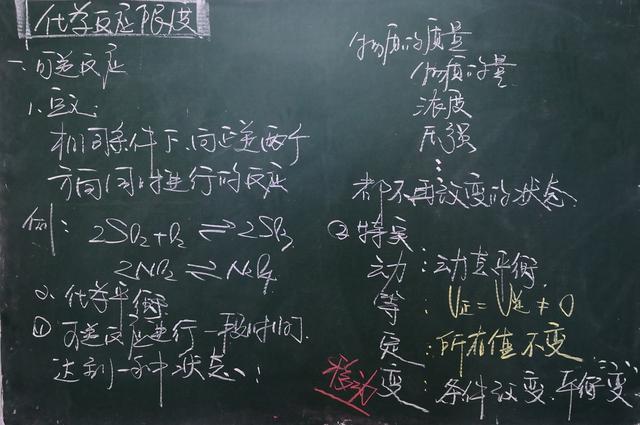 化学反应限度
一、可逆反应
1、定义:
相同条件下、向正逆两个
方向同时进行的反应
例: 2SO₂+O₂⇌2SO₃
2NO₂⇌N₂O₄
2、化学平衡
① 可逆反应进行一段时间、
达到一种状态:
物质的质量
物质的量
浓度
压强
⋮
都不再改变的状态
② 特点
动:动态平衡
等:V正=V逆≠0
定:所有值不变
变:条件改变、平衡变
移动